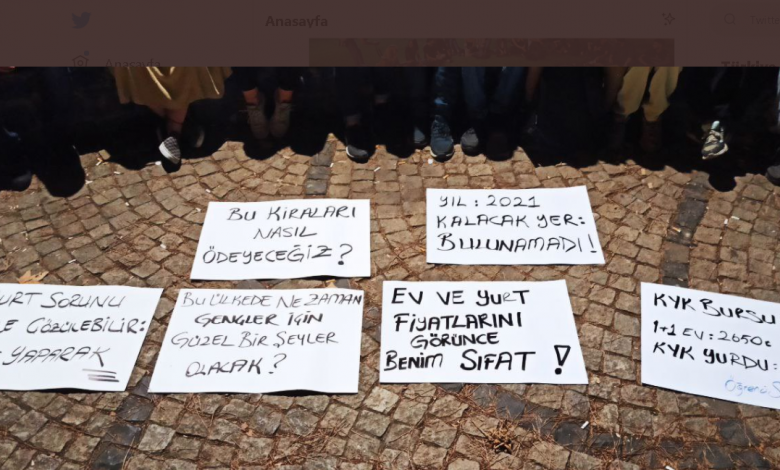 Anasayfa
Anasayfa
BU KİRALARI
NASIL
ÖDEYECEĞİZ?
YIL: 2021
KALACAK YER:
BULUNAMADI!
URT SORUNU
LE ÇÖZÜLEBİLİR:
YAPARAK
BU ÜLKEDE NE ZAMAN
GENÇLER İÇİN
GÜZEL BİR ŞEYLER
OLACAK?
EV VE YURT
FİYATLARINI
GÖRÜNCE
BENİM SIFAT!
KYK BURSU
1+1 EV: 2650
KYK YURDU: